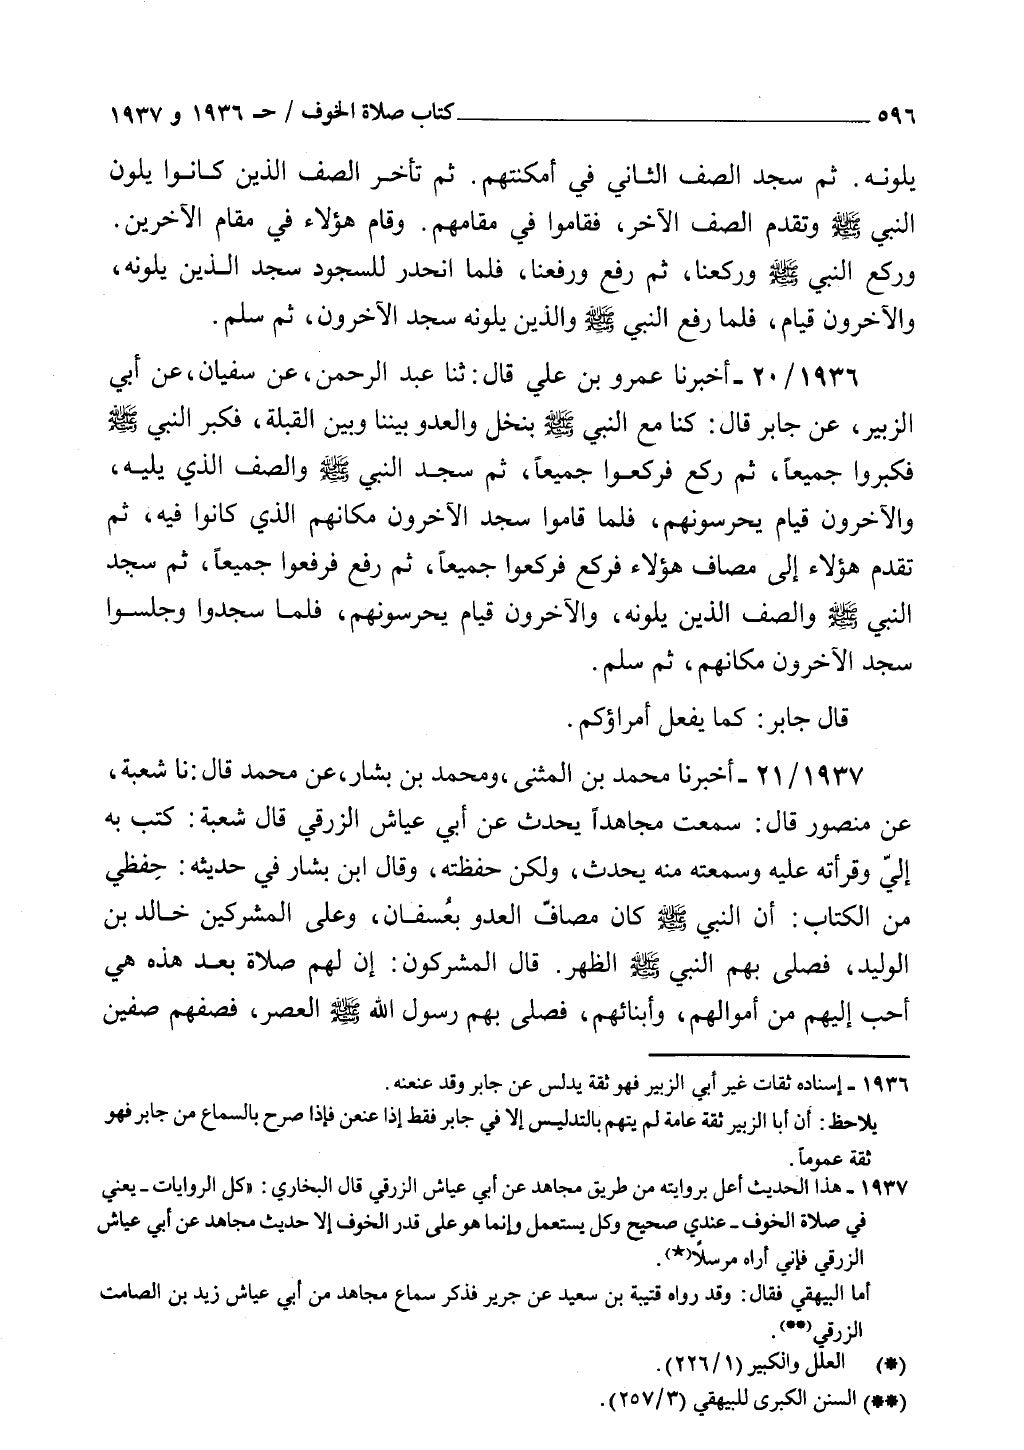 ٥٩٦ كتاب صلاة الخوف / حـ ١٩٣٦ و ١٩٣٧
يلونـه. ثم سجد الصف الثاني في أمكنتهم. ثم تأخـر الصف الذين كـانـوا يلون
النبي ﷺ وتقدم الصف الآخر، فقاموا في مقامهم. وقام هؤلاء في مقام الآخرين.
وركع النبي ﷺ وركعنا، ثم رفع ورفعنا، فلما انحدر للسجود سجد الـذين يلونه،
والآخرون قيام، فلما رفع النبي ﷺ والذين يلونه سجد الآخرون، ثم سلم.
٢٠/١٩٣٦ ـ أخبرنا عمرو بن علي قال: ثنا عبد الرحمن، عن سفيان، عن أبي
الزبير، عن جابر قال: كنا مع النبي ﷺ بنخل والعدو بيننا وبين القبلة، فكبر النبي ﷺ
فكبروا جميعاً، ثم ركع فركعـوا جميعاً، ثم سجـد النبي ﷺ والصف الذي يليه،
والآخرون قيام يحرسونهم، فلما قاموا سجد الآخرون مكانهم الذي كانوا فيه، ثم
تقدم هؤلاء إلى مصاف هؤلاء فركع فركعوا جميعاً، ثم رفع فرفعوا جميعاً، ثم سجد
النبي ﷺ والصف الذين يلونه، والآخرون قيام يحرسونهم، فلمـا سجدوا وجلسـوا
سجد الآخرون مكانهم، ثم سلم.
قال جابر: كما يفعل أمراؤكم.
٢١/١٩٣٧ ـ أخبرنا محمد بن المثنى، ومحمد بن بشار، عن محمد قال: نا شعبة،
عن منصور قال: سمعت مجاهداً يحدث عن أبي عياش الزرقي قال شعبة: كتب به
إليّ وقرأته عليه وسمعته منه يحدث، ولكن حفظته، وقال ابن بشار في حديثه: حِفظي
من الكتاب: أن النبي ﷺ كان مصافّ العدو بعُسفـان، وعلى المشركين خـالد بن
الوليد، فصلى بهم النبي ﷺ الظهر. قال المشركون: إن لهم صلاة بعـد هذه هي
أحب إليهم من أموالهم، وأبنائهم، فصلى بهم رسول الله ﷺ العصر، فصفهم صفين
١٩٣٦ ـ إسناده ثقات غير أبي الزبير فهو ثقة يدلس عن جابر وقد عنعنه.
يلاحظ: أن أبا الزبير ثقة عامة لم يتهم بالتدليس إلا في جابر فقط إذا عنعن فإذا صرح بالسماع من جابر فهو
ثقة عموماً.
١٩٣٧ ـ هذا الحديث أعل بروايته من طريق مجاهد عن أبي عياش الزرقي قال البخاري: «كل الروايات ـ يعني
في صلاة الخوف ـ عندي صحيح وكل يستعمل وإنما هو على قدر الخوف إلا حديث مجاهد عن أبي عياش
الزرقي فإني أراه مرسلًا(*).
أما البيهقي فقال: وقد رواه قتيبة بن سعيد عن جرير فذكر سماع مجاهد من أبي عياش زيد بن الصامت
الزرقي(**).
(*) العلل والكبير (٢٢٦/١).
(**) السنن الكبرى للبيهقي (٢٥٧/٣).